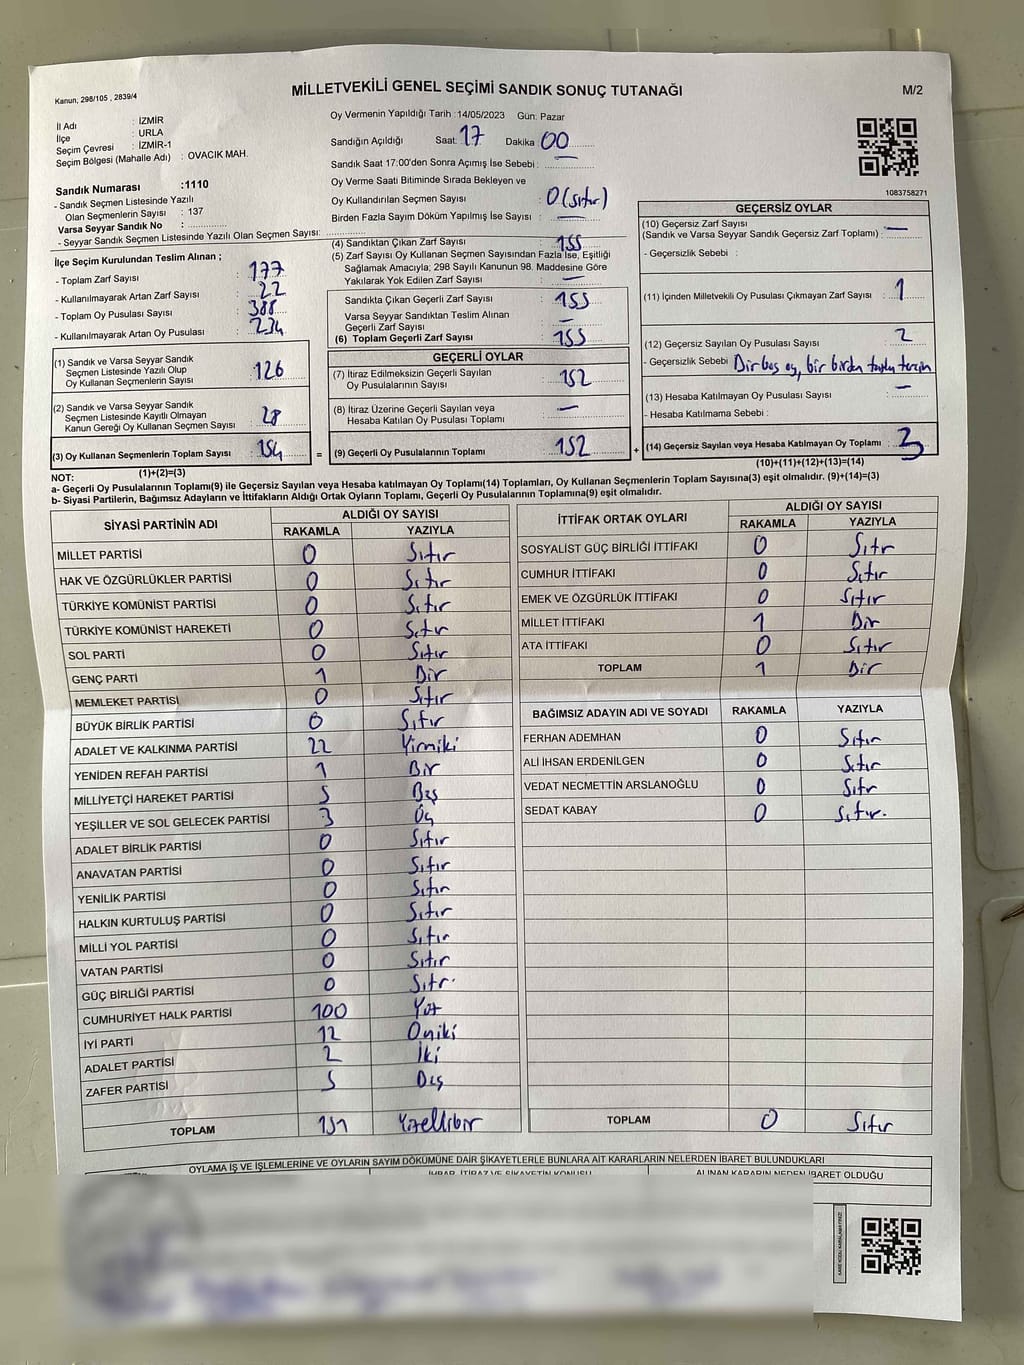 Kanun, 298/105 , 2839/4
MİLLETVEKİLİ GENEL SEÇİMİ SANDIK SONUÇ TUTANAĞI
M/2
İl Adı : İZMİR
İlçe : URLA
Seçim Çevresi : İZMİR-1
Seçim Bölgesi (Mahalle Adı) : OVACIK MAH.
Sandık Numarası :1110
- Sandık Seçmen Listesinde Yazılı
Olan Seçmenlerin Sayısı : 137
Varsa Seyyar Sandık No :
- Seyyar Sandık Seçmen Listesinde Yazılı Olan Seçmen Sayısı:
Oy Vermenin Yapıldığı Tarih :14/05/2023 Gün: Pazar
Sandığın Açıldığı Saat: 17 Dakika 00
Sandık Saat 17:00'den Sonra Açımış İse Sebebi :
Oy Verme Saati Bitiminde Sırada Bekleyen ve
Oy Kullandırılan Seçmen Sayısı : 0 (Sıfır)
Birden Fazla Sayım Döküm Yapılmış İse Sayısı : —
1083758271
İlçe Seçim Kurulundan Teslim Alınan ;
- Toplam Zarf Sayısı : 177
- Kullanılmayarak Artan Zarf Sayısı : 22
- Toplam Oy Pusulası Sayısı : 388
- Kullanılmayarak Artan Oy Pusulası : 234
(1) Sandık ve Varsa Seyyar Sandık
Seçmen Listesinde Yazılı Olup
Oy Kullanan Seçmenlerin Sayısı : 126
(2) Sandık ve Varsa Seyyar Sandık
Seçmen Listesinde Kayıtlı Olmayan
Kanun Gereği Oy Kullanan Seçmen Sayısı : 28
(3) Oy Kullanan Seçmenlerin Toplam Sayısı : 154
(1)+(2)=(3)
(4) Sandıktan Çıkan Zarf Sayısı : 155
(5) Zarf Sayısı Oy Kullanan Seçmen Sayısından Fazla İse, Eşitliği
Sağlamak Amacıyla; 298 Sayılı Kanunun 98. Maddesine Göre
Yakılarak Yok Edilen Zarf Sayısı : —
Sandıkta Çıkan Geçerli Zarf Sayısı : 155
Varsa Seyyar Sandıktan Teslim Alınan
Geçerli Zarf Sayısı : —
(6) Toplam Geçerli Zarf Sayısı : 155
GEÇERLİ OYLAR
(7) İtiraz Edilmeksizin Geçerli Sayılan
Oy Pusulalarının Sayısı : 152
(8) İtiraz Üzerine Geçerli Sayılan veya
Hesaba Katılan Oy Pusulası Toplamı : —
= (9) Geçerli Oy Pusulalarının Toplamı : 152
GEÇERSİZ OYLAR
(10) Geçersiz Zarf Sayısı
(Sandık ve Varsa Seyyar Sandık Geçersiz Zarf Toplamı) : —
- Geçersizlik Sebebi :
(11) İçinden Milletvekili Oy Pusulası Çıkmayan Zarf Sayısı : 1
(12) Geçersiz Sayılan Oy Pusulası Sayısı : 2
- Geçersizlik Sebebi : Bir boş oy, bir birden
(13) Hesaba Katılmayan Oy Pusulası Sayısı : —
- Hesaba Katılmama Sebebi :
+ (14) Geçersiz Sayılan veya Hesaba Katılmayan Oy Toplamı : 3
(10)+(11)+(12)+(13)=(14)
NOT:
a- Geçerli Oy Pusulalarının Toplamı(9) ile Geçersiz Sayılan veya Hesaba Katılmayan Oy Toplamı(14) Toplamları, Oy Kullanan Seçmenlerin Toplam Sayısına(3) eşit olmalıdır. (9)+(14)=(3)
b- Siyasi Partilerin, Bağımsız Adayların ve İttifakların Aldığı Ortak Oyların Toplamı, Geçerli Oy Pusulalarının Toplamına(9) eşit olmalıdır.
SİYASİ PARTİNİN ADI ALDIĞI OY SAYISI
RAKAMLA YAZIYLA
MİLLET PARTİSİ 0 Sıfır
HAK VE ÖZGÜRLÜKLER PARTİSİ 0 Sıfır
TÜRKİYE KOMÜNİST PARTİSİ 0 Sıfır
TÜRKİYE KOMÜNİST HAREKETİ 0 Sıfır
SOL PARTİ 0 Sıfır
GENÇ PARTİ 1 Bir
MEMLEKET PARTİSİ 0 Sıfır
BÜYÜK BİRLİK PARTİSİ 0 Sıfır
ADALET VE KALKINMA PARTİSİ 22 Yirmiki
YENİDEN REFAH PARTİSİ 1 Bir
MİLLİYETÇİ HAREKET PARTİSİ 5 Beş
YEŞİLLER VE SOL GELECEK PARTİSİ 3 Üç
ADALET BİRLİK PARTİSİ 0 Sıfır
ANAVATAN PARTİSİ 0 Sıfır
YENİLİK PARTİSİ 0 Sıfır
HALKIN KURTULUŞ PARTİSİ 0 Sıfır
MİLLİ YOL PARTİSİ 0 Sıfır
VATAN PARTİSİ 0 Sıfır
GÜÇ BİRLİĞİ PARTİSİ 0 Sıfır
CUMHURİYET HALK PARTİSİ 100 Yüz
İYİ PARTİ 12 Oniki
ADALET PARTİSİ 2 İki
ZAFER PARTİSİ 5 Beş
TOPLAM 151 Yüzellibir
İTTİFAK ORTAK OYLARI ALDIĞI OY SAYISI
RAKAMLA YAZIYLA
SOSYALİST GÜÇ BİRLİĞİ İTTİFAKI 0 Sıfır
CUMHUR İTTİFAKI 0 Sıfır
EMEK VE ÖZGÜRLÜK İTTİFAKI 0 Sıfır
MİLLET İTTİFAKI 1 Bir
ATA İTTİFAKI 0 Sıfır
TOPLAM 1 Bir
BAĞIMSIZ ADAYIN ADI VE SOYADI RAKAMLA YAZIYLA
FERHAN ADEMHAN 0 Sıfır
ALİ İHSAN ERDENİLGEN 0 Sıfır
VEDAT NECMETTİN ARSLANOĞLU 0 Sıfır
SEDAT KABAY 0 Sıfır.
TOPLAM 0 Sıfır
OYLAMA İŞ VE İŞLEMLERİNE VE OYLARIN SAYIM DÖKÜMÜNE DAİR ŞİKAYETLERLE BUNLARA AİT KARARLARIN NELERDEN İBARET BULUNDUKLARI
İHBAR, İTİRAZ VE ŞİKAYETİN KONUSU ALINAN KARARIN NEDEN İBARET OLDUĞU